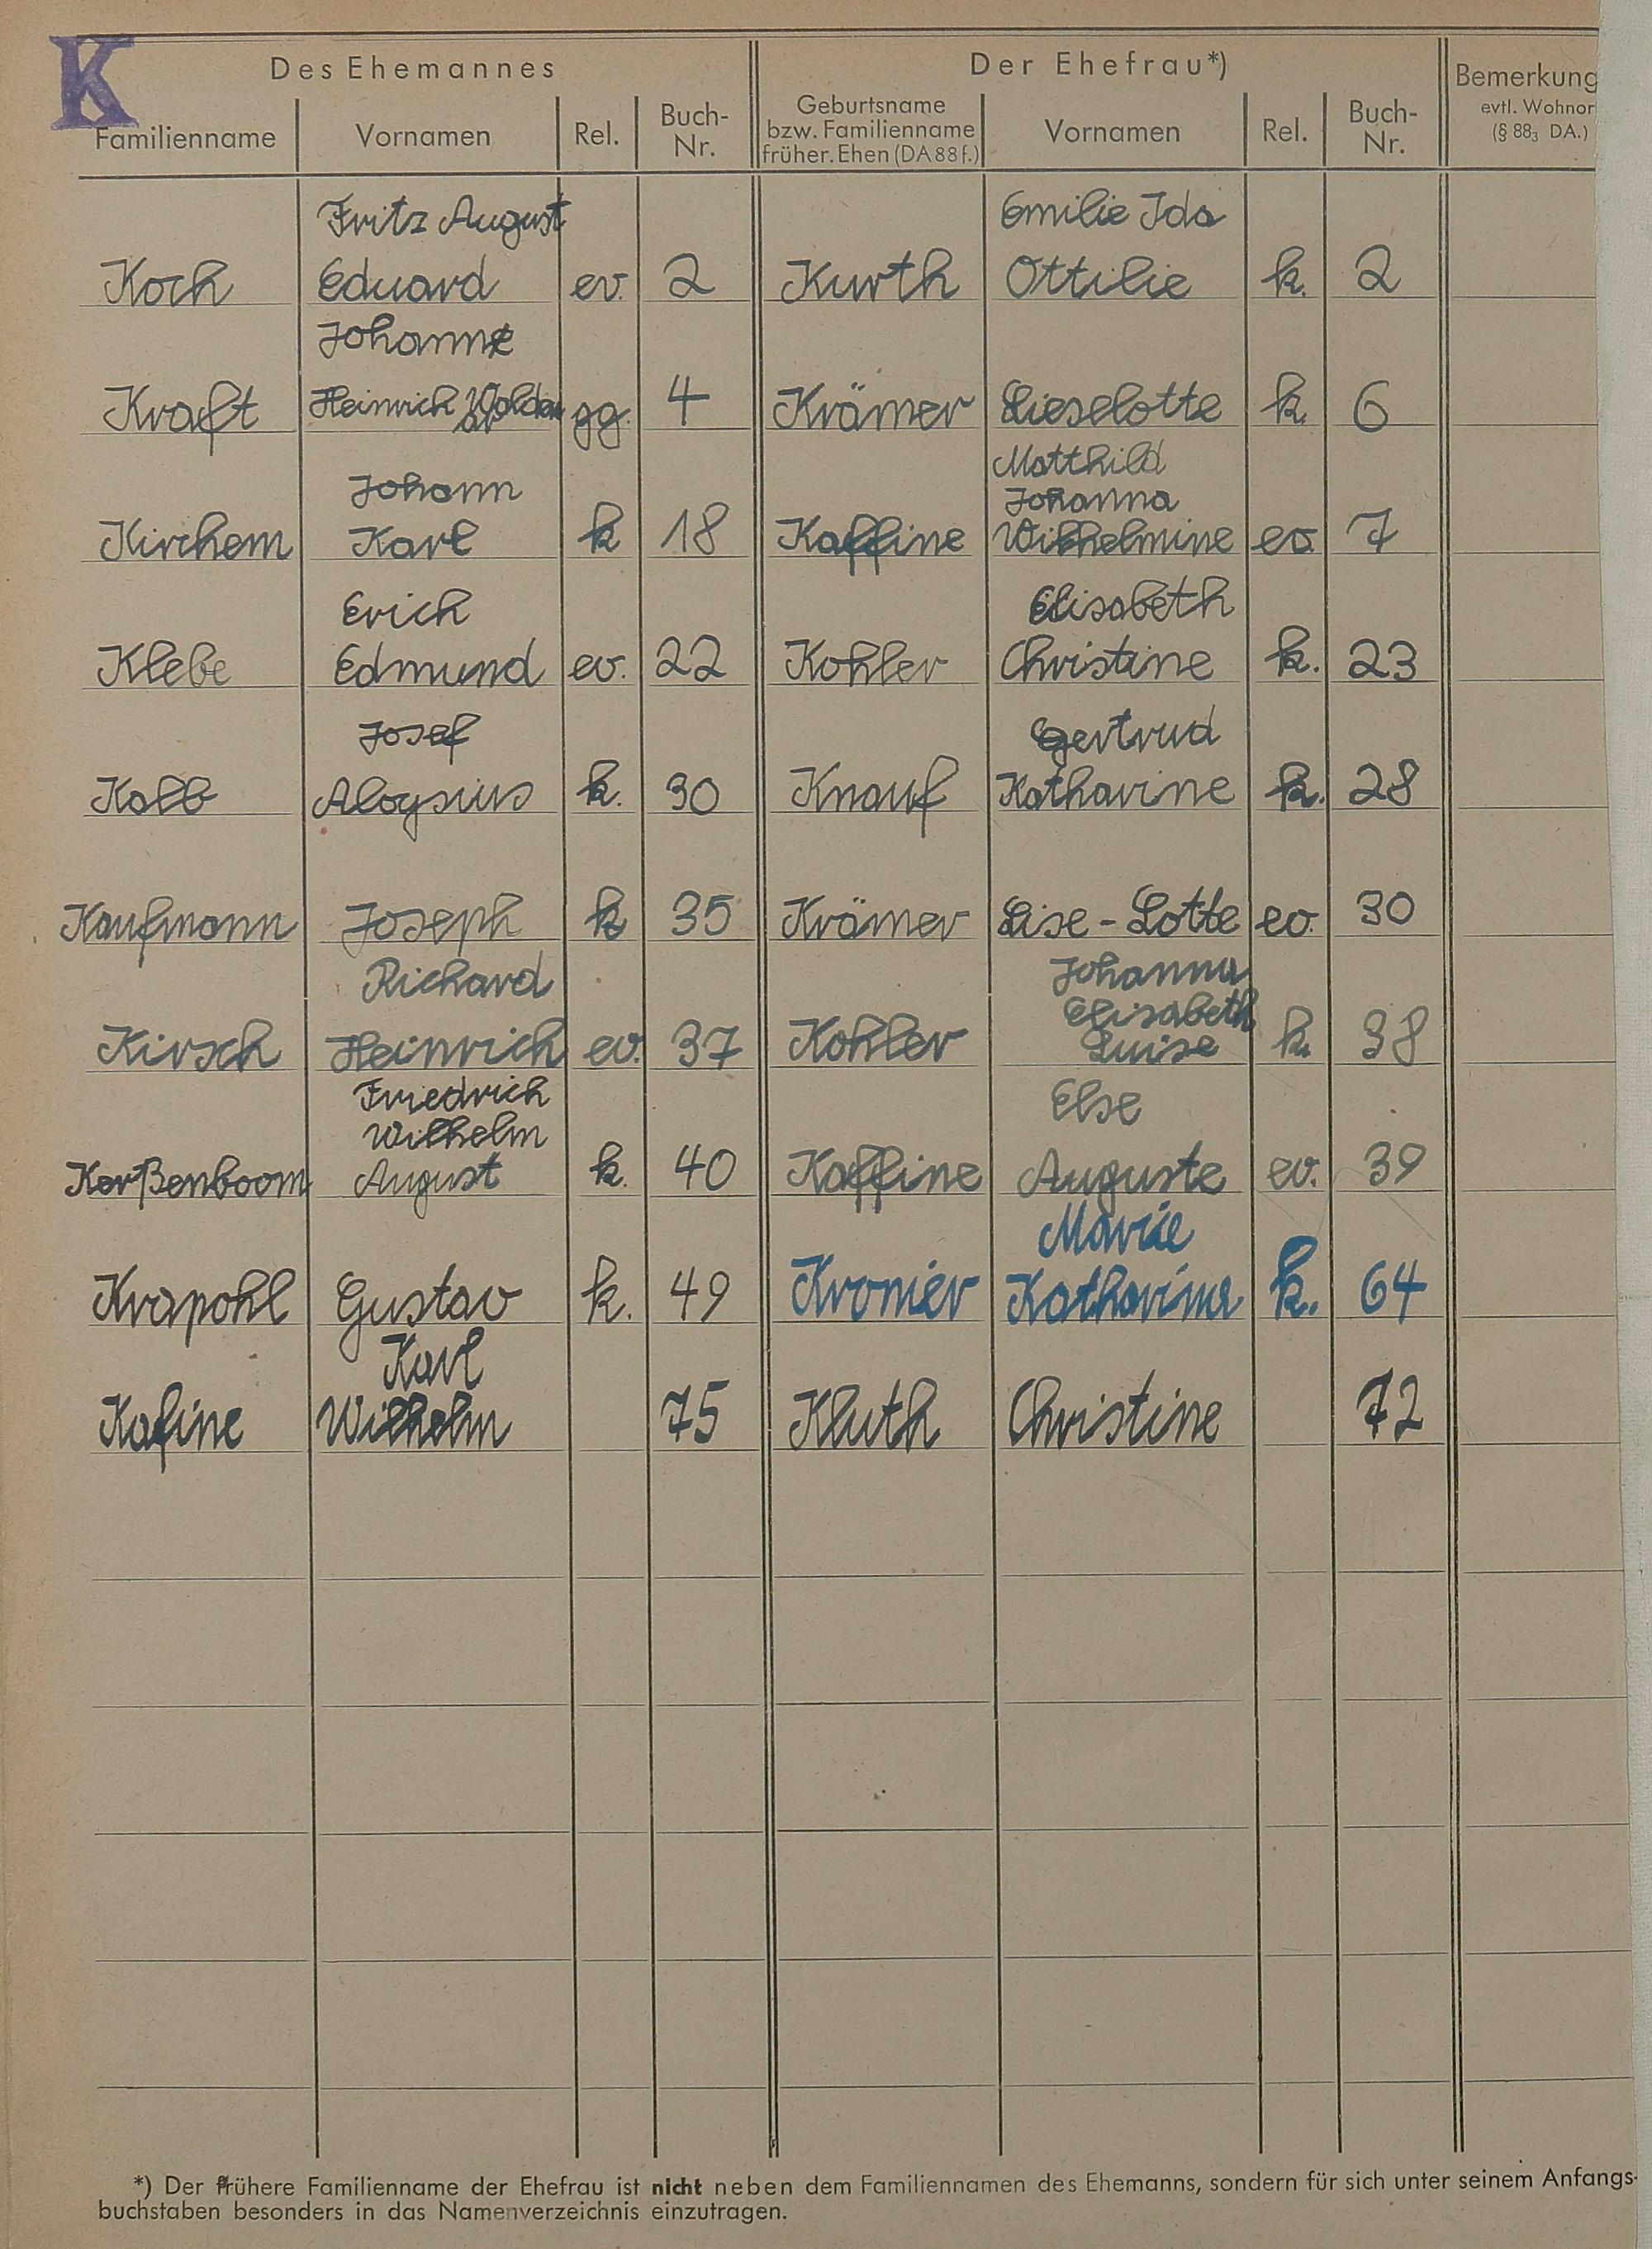 K
Des Ehemannes Der Ehefrau*) Bemerkung
Familienname Vornamen Rel. Buch-Nr. Geburtsname bzw. Familienname früher. Ehen (DA 88 f.) Vornamen Rel. Buch-Nr. evtl. Wohnor (§ 88₃ DA.)
Fritz August Emilie Ida
Koch Eduard ev. 2 Kurth Ottilie k. 2
Johann
Kraft Heinrich Woldemar gg. 4 Krämer Lieselotte k. 6
Matthild
Johann Johanna
Kirchem Karl k 18 Kaffine Wilhelmine ev. 7
Erich Elisabeth
Klebe Edmund ev. 22 Kohler Christine k. 23
Josef Gertrud
Kolb Aloysius k. 30 Knauf Katharine k. 28
Kaufmann Joseph k 35 Krämer Lise-Lotte ev. 30
Richard Johanna
Elisabeth
Kirsch Heinrich ev. 37 Kohler Luise k. 38
Friedrich Else
Wilhelm
Kerßenboom August k. 40 Kaffine Auguste ev. 39
Marie
Krapohl Gustav k. 49 Kronier Katharina k. 64
Karl
Kafine Wilhelm 75 Kluth Christine 72
*) Der frühere Familienname der Ehefrau ist nicht neben dem Familiennamen des Ehemanns, sondern für sich unter seinem Anfangs-
buchstaben besonders in das Namenverzeichnis einzutragen.